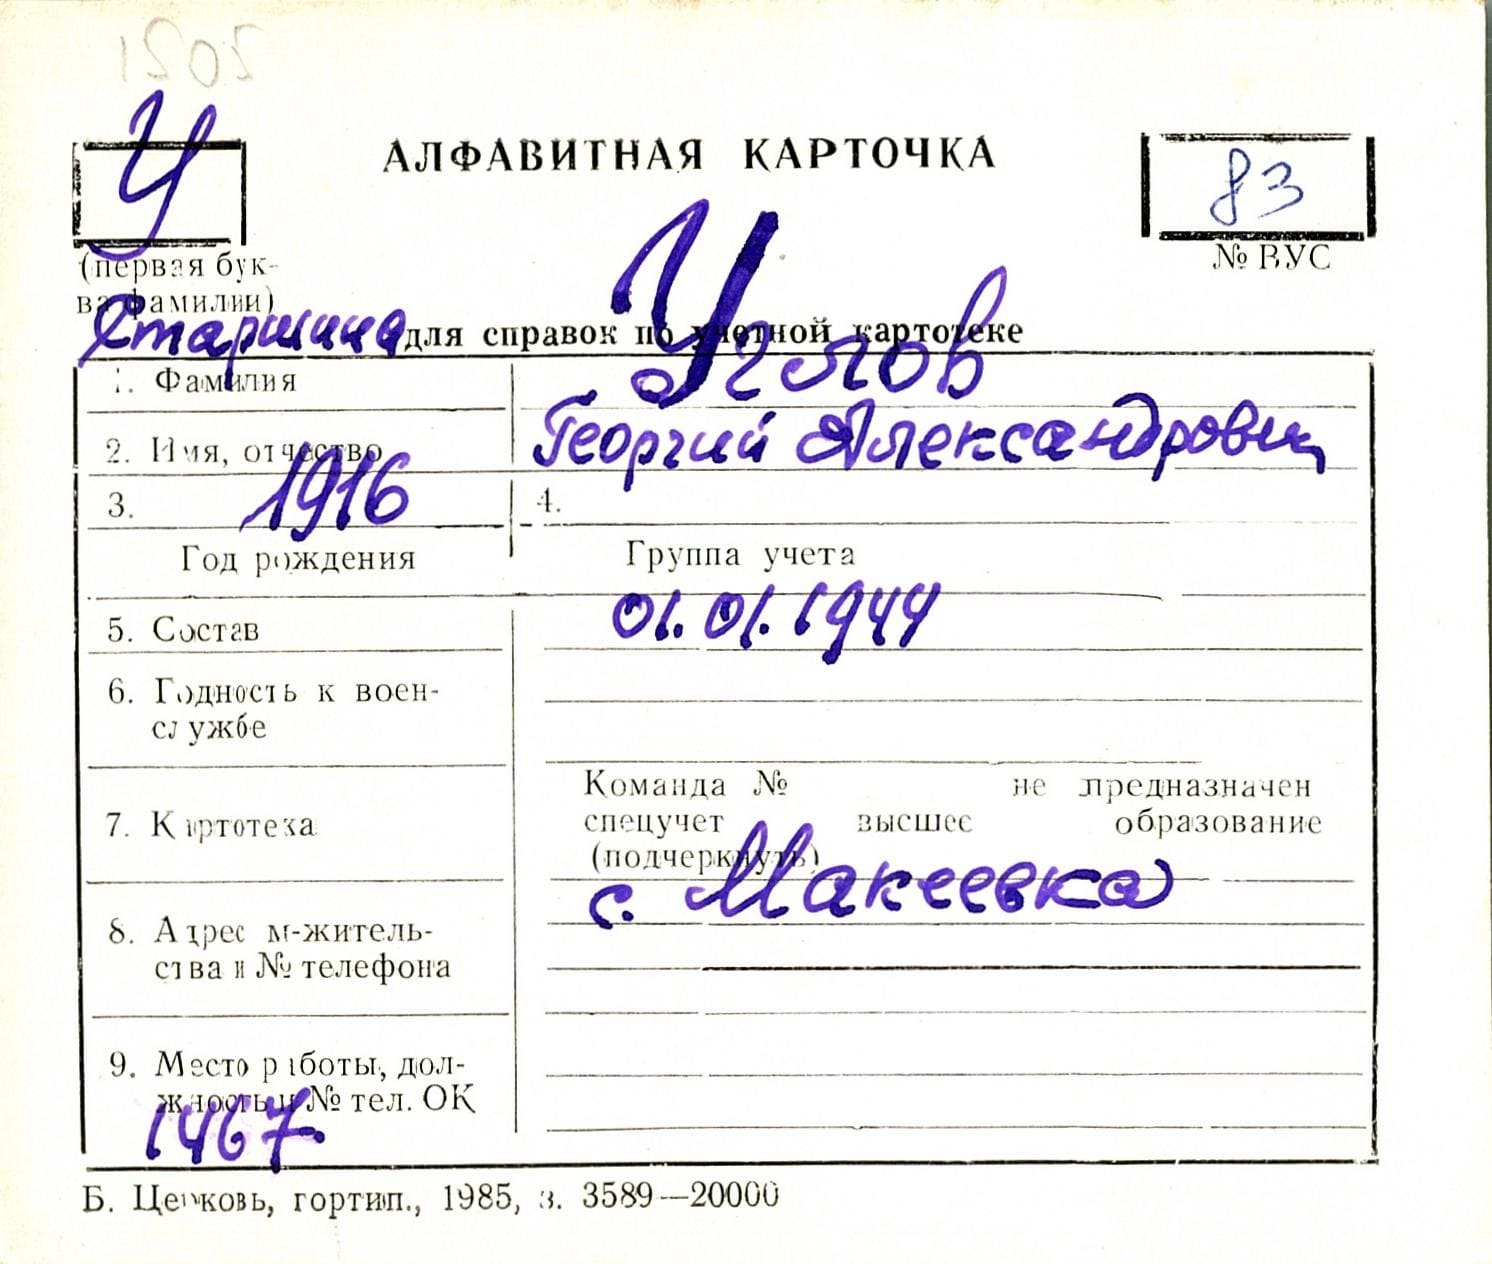 1505
У
АЛФАВИТНАЯ КАРТОЧКА
83
(первая бук-
ва фамилии)
№ ВУС
Старшина для справок по учетной картотеке
1. Фамилия Углов
2. Имя, отчество Георгий Александрович
3. 1916 4.
Год рождения Группа учета
5. Состав 01.01.1944
6. Годность к воен-
службе
Команда № не предназначен
7. Картотека спецучет высшее образование
(подчеркнуть)
с. Макеевка
8. Адрес м-житель-
ства и № телефона
9. Место работы, дол-
жность и № тел. ОК
1467.
Б. Церковь, гортип., 1985, з. 3589—20000